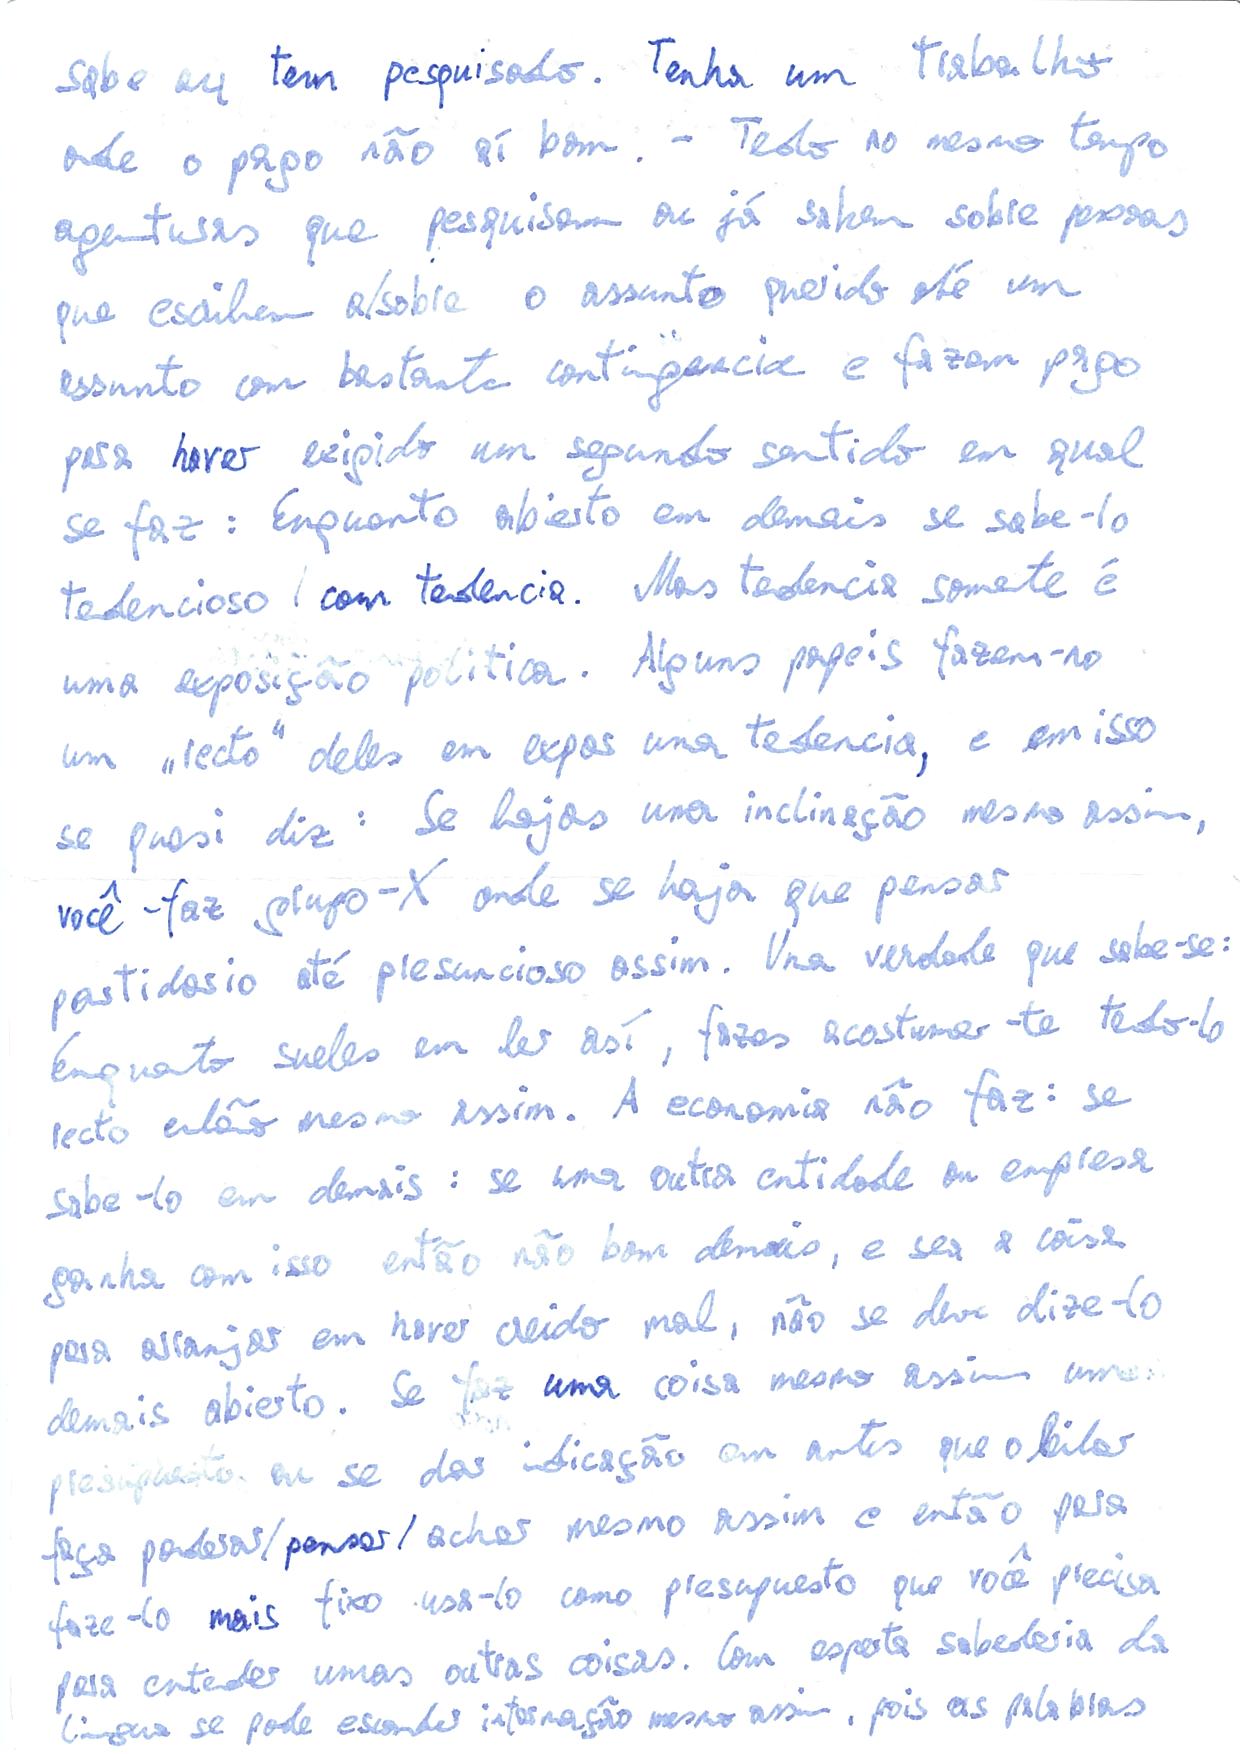 sabe ou tem pesquisado. Tenha um trabalho
onde o pago não aí bom. - Tedo no mesmo tempo
agenturas que pesquisam ou já sabem sobre pessoas
que escribem a/sobre o assunto querido até um
assunto com bastante e fazem pago
para haver exigido um segundo sentido em qual
se faz: Enquanto abierto em demais se sabe-lo
tedencioso / com tedencia. Mas tedencia somente é
uma exposição politica. Alguns papeis fazem-no
um „recto“ deles em expor una tedencia, e em isso
se quasi diz: Se hajas uma inclinação mesmo assim,
você -faz grupo-X onde se haja que pensar
partidario até presuncioso assim. Una verdade que sabe-se:
Enquanto sueles em ler así, fazes acostumar-te tedo-lo
recto então mesmo assim. A economia não faz: se
sabe-lo em demais: se uma outra entidade ou empresa
ganha com isso então não bom demais, e sea a coisa
para arranjar em haver creido mal, não se deve dize-lo
demais abierto. Se faz uma coisa mesmo assim umo
presupuesto. ou se dar indicação em antes que o leitor
faça ponderar/pensar/achar mesmo assim e então para
faze-lo mais fixo usa-lo como presupuesto que você precisa
para entender umas outras coisas. Com esperta sabederia da
lingua se pode esconder informação mesmo assim, pois as palabras